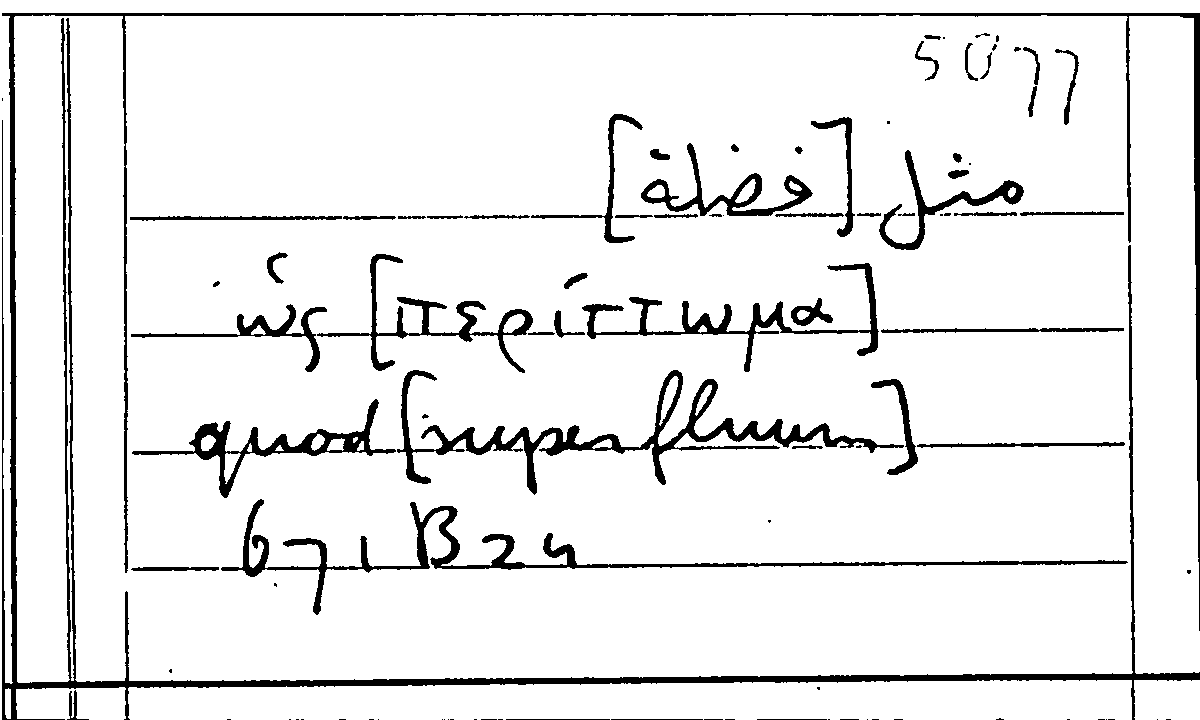 5077
مثل [فضلة]
ὡς [περίττωμα]
quod [superfluum]
671 B 24